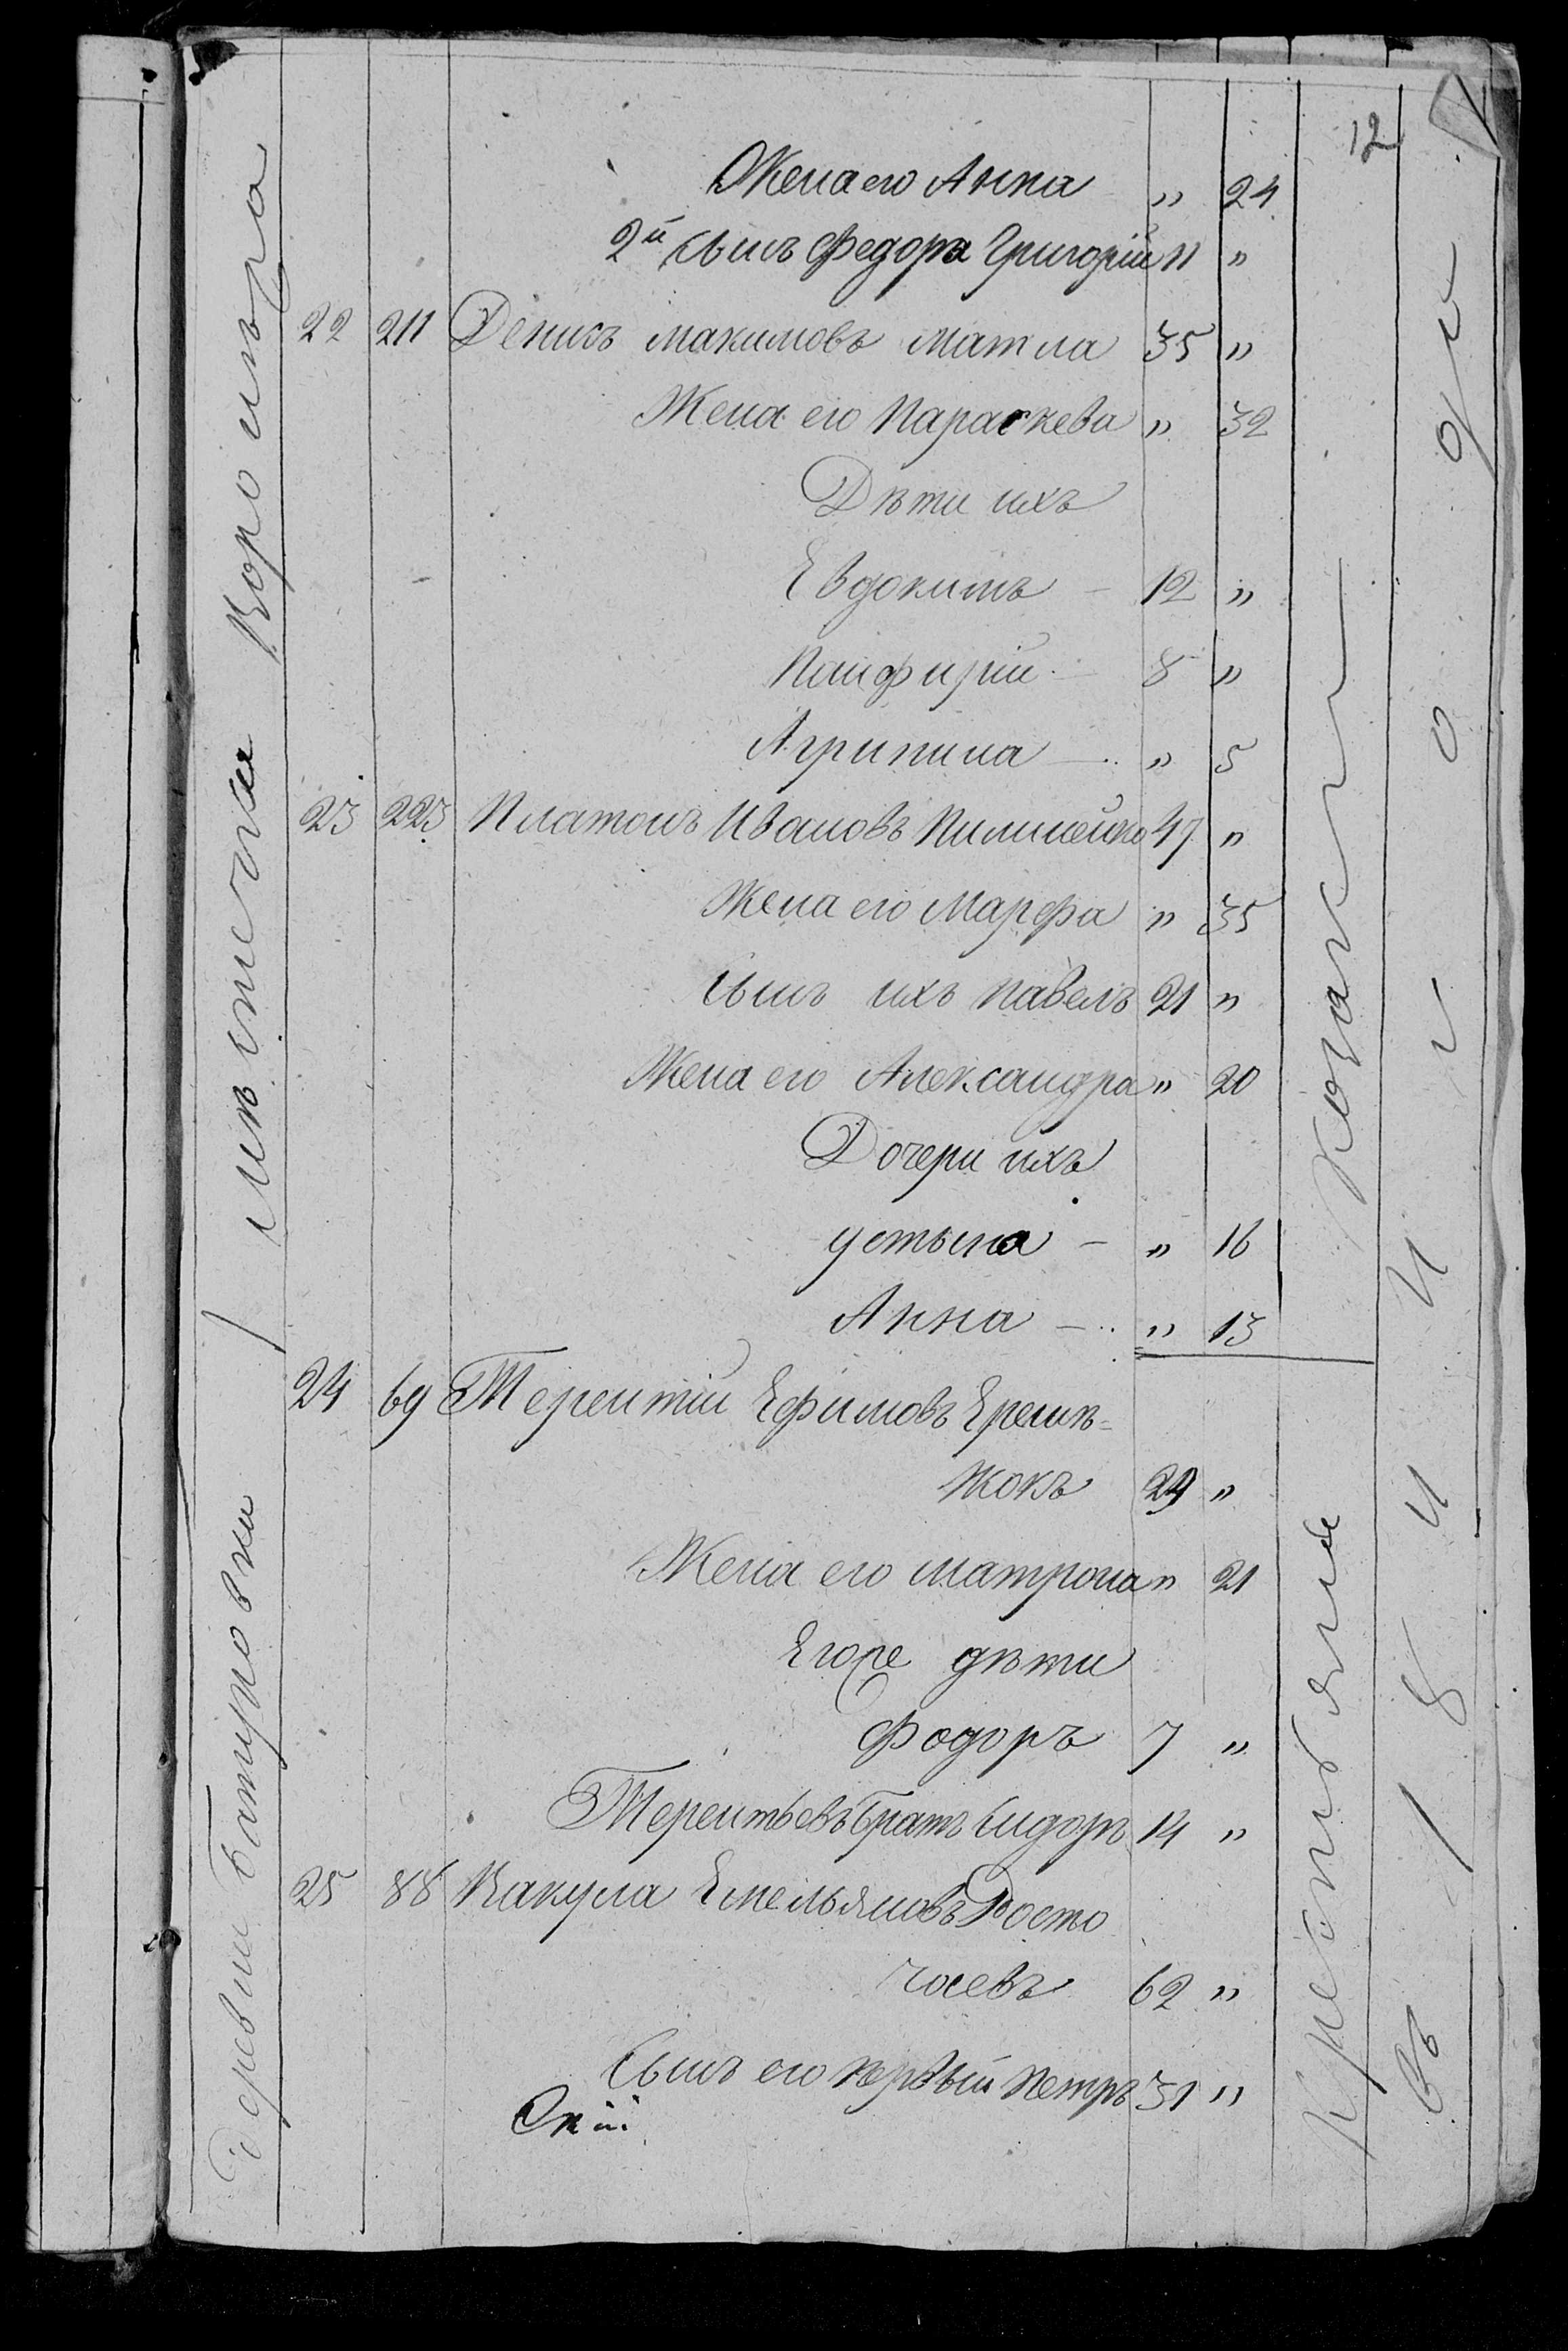 12
Жена его Анна " 24
2й Сынъ Федора Григорій 11 "
22 211 Денисъ Макимовъ Матла 35 "
Жена его Параскева " 32
Дѣти ихъ
Евдокимъ – 12 "
Панфирій – 8 "
Агрипина – " 5
23 223 Платонъ Ивановъ 47 "
Жена его Марфа " 35
Сынъ ихъ Павелъ 21 "
Жена его Александра " 20
Дочери ихъ
Устына – " 16
Анна – " 13
24 69 Терентій Ефимовъ Ерешѣ-
жокъ 29 "
Жена его Матрона " 21
Егоре дѣти
Фодоръ 7 "
Терентьевъ братъ Сидоръ 14 "
25 88 Вакула Емельяновъ Росто
чаевъ 62 "
Сынъ его первый Петръ 31 "
мѣстечка Воронѣжа
деревни Батуровки
Козаки
Крестьяне
въ 1 8